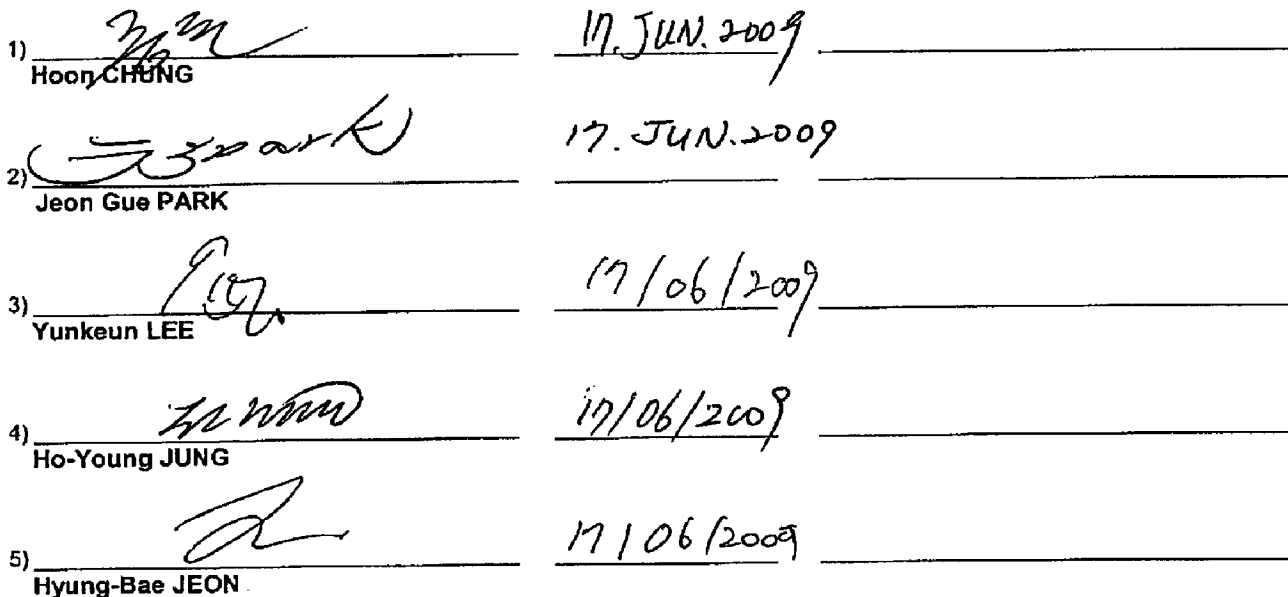 1) 17. JUN. 2009
Hoon CHUNG
2) 17. JUN. 2009
Jeon Gue PARK
3) 17/06/2009
Yunkeun LEE
4) 17/06/2009
Ho-Young JUNG
5) 17/06/2009
Hyung-Bae JEON